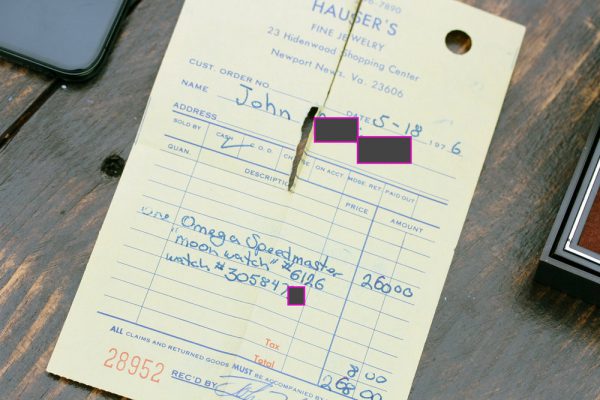 6-7890
HAUSER'S
FINE JEWELRY
23 Hidenwood Shopping Center
Newport News, Va. 23606
CUST. ORDER NO.
DATE 5-18 1976
NAME John
ADDRESS
SOLD BY CASH C.O.D. CHARGE ON ACCT. MDSE. RET. PAID OUT
QUAN. DESCRIPTION PRICE AMOUNT
One Omega Speedmaster
"moon watch" #6126 260 00
watch #305847
Tax 8 00
Total 268 00
ALL CLAIMS AND RETURNED GOODS MUST BE ACCOMPANIED BY
28952 REC'D BY